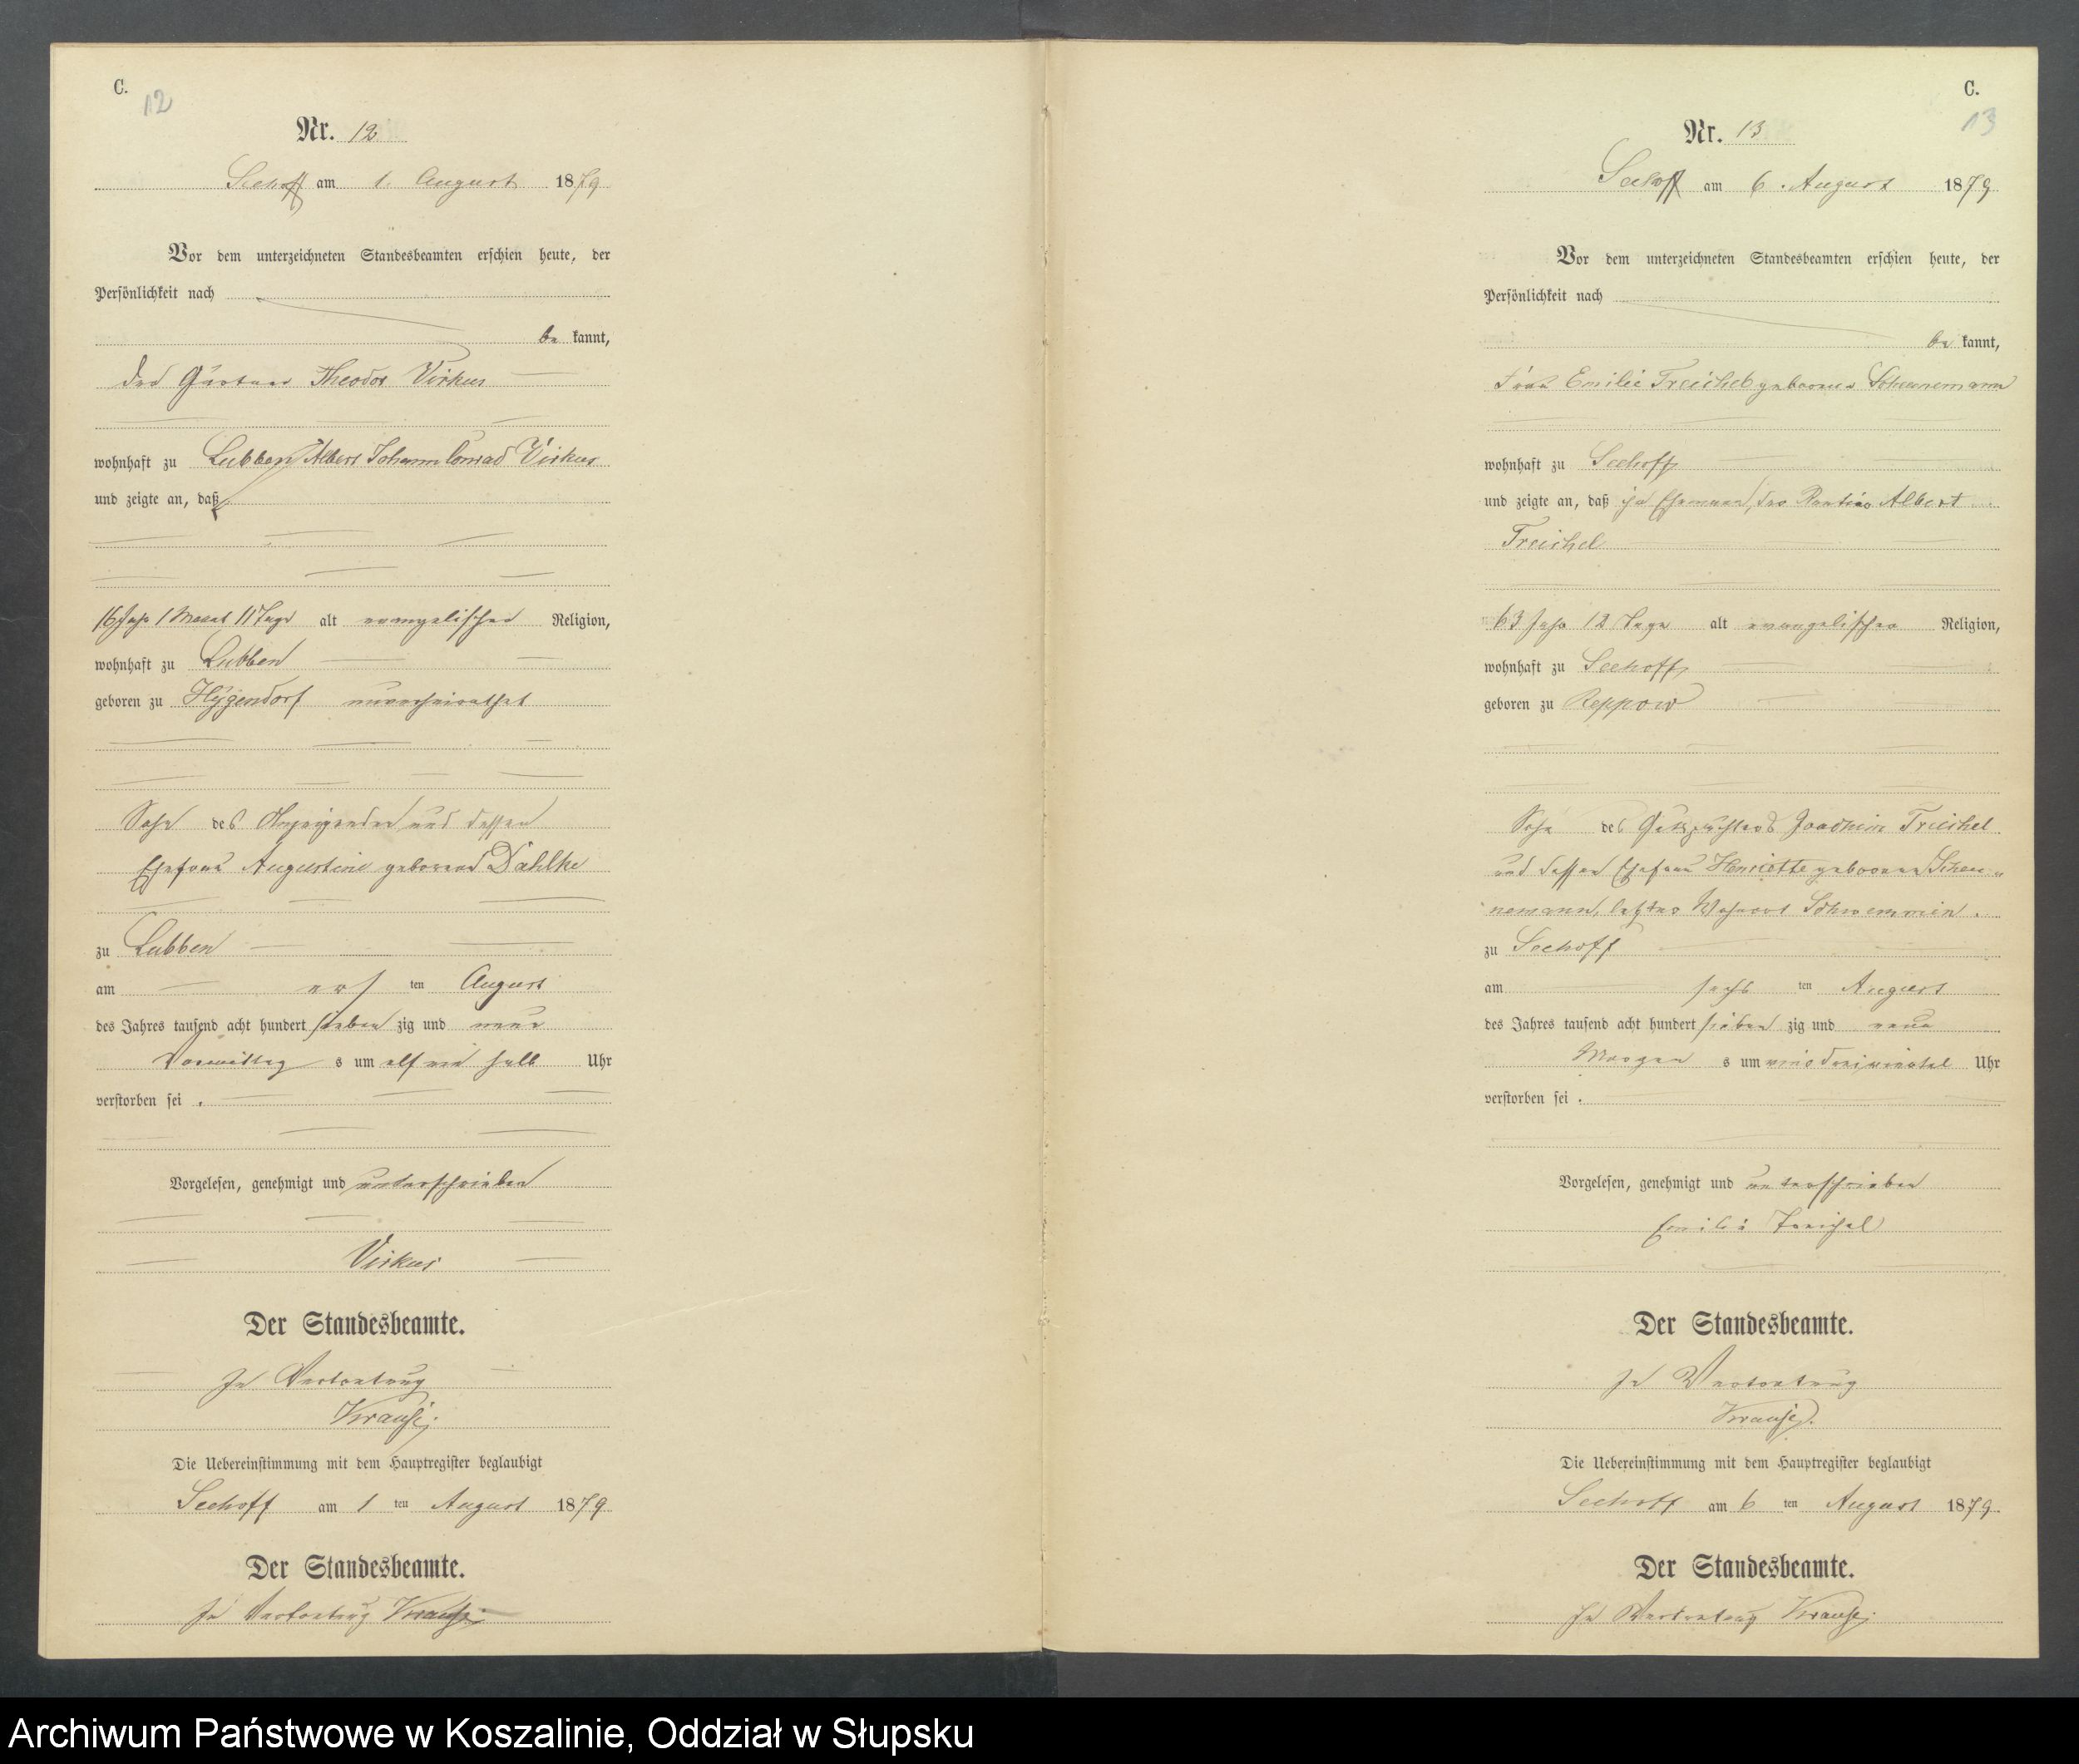 C.
12
Nr. 12
Seehoff am 1. August 1879
Vor dem unterzeichneten Standesbeamten erschien heute, der
Persönlichkeit nach
be kannt,
der Gärtner Theodor Virkus
wohnhaft zu Lubben Albert Johann Conrad Virkus
und zeigte an, daß
16 Jahr 1 Monat 11 Tage alt evangelischer Religion,
wohnhaft zu Lubben
geboren zu Hygendorf unverheirathet
Sohn des Anzeigenden und dessen
Ehefrau Augustine geborene Dahlke
zu Lubben
am ers ten August
des Jahres tausend acht hundert sieben zig und neun
Vormittag s um elf ein halb Uhr
verstorben sei .
Vorgelesen, genehmigt und unterschrieben
Virkus
Der Standesbeamte.
In Vertretung
Krause.
Die Uebereinstimmung mit dem Hauptregister beglaubigt
Seehoff am 1 ten August 1879
Der Standesbeamte.
In Vertretung Krause.
C.
13
Nr. 13
Seehoff am 6. August 1879
Vor dem unterzeichneten Standesbeamten erschien heute, der
Persönlichkeit nach
be kannt,
Frau Emilie Treichel geborene Scheunemann
wohnhaft zu Seehoff
und zeigte an, daß ihr Ehemann, der Rentier Albert
Treichel
63 Jahr 12 Tage alt evangelischer Religion,
wohnhaft zu Seehoff
geboren zu Reppow
Sohn des Gutspächters Joachim Treichel
und dessen Ehefrau Henriette geborene Scheu-
nemann, letzter Wohnort Schwemmin.
zu Seehoff
am sechs ten August
des Jahres tausend acht hundert sieben zig und neun
Morgen s um ein dreiviertel Uhr
verstorben sei .
Vorgelesen, genehmigt und unterschrieben
Emilie Treichel
Der Standesbeamte.
In Vertretung
Krause.
Die Uebereinstimmung mit dem Hauptregister beglaubigt
Seehoff am 6 ten August 1879
Der Standesbeamte.
In Vertretung Krause.
Archiwum Państwowe w Koszalinie, Oddział w Słupsku